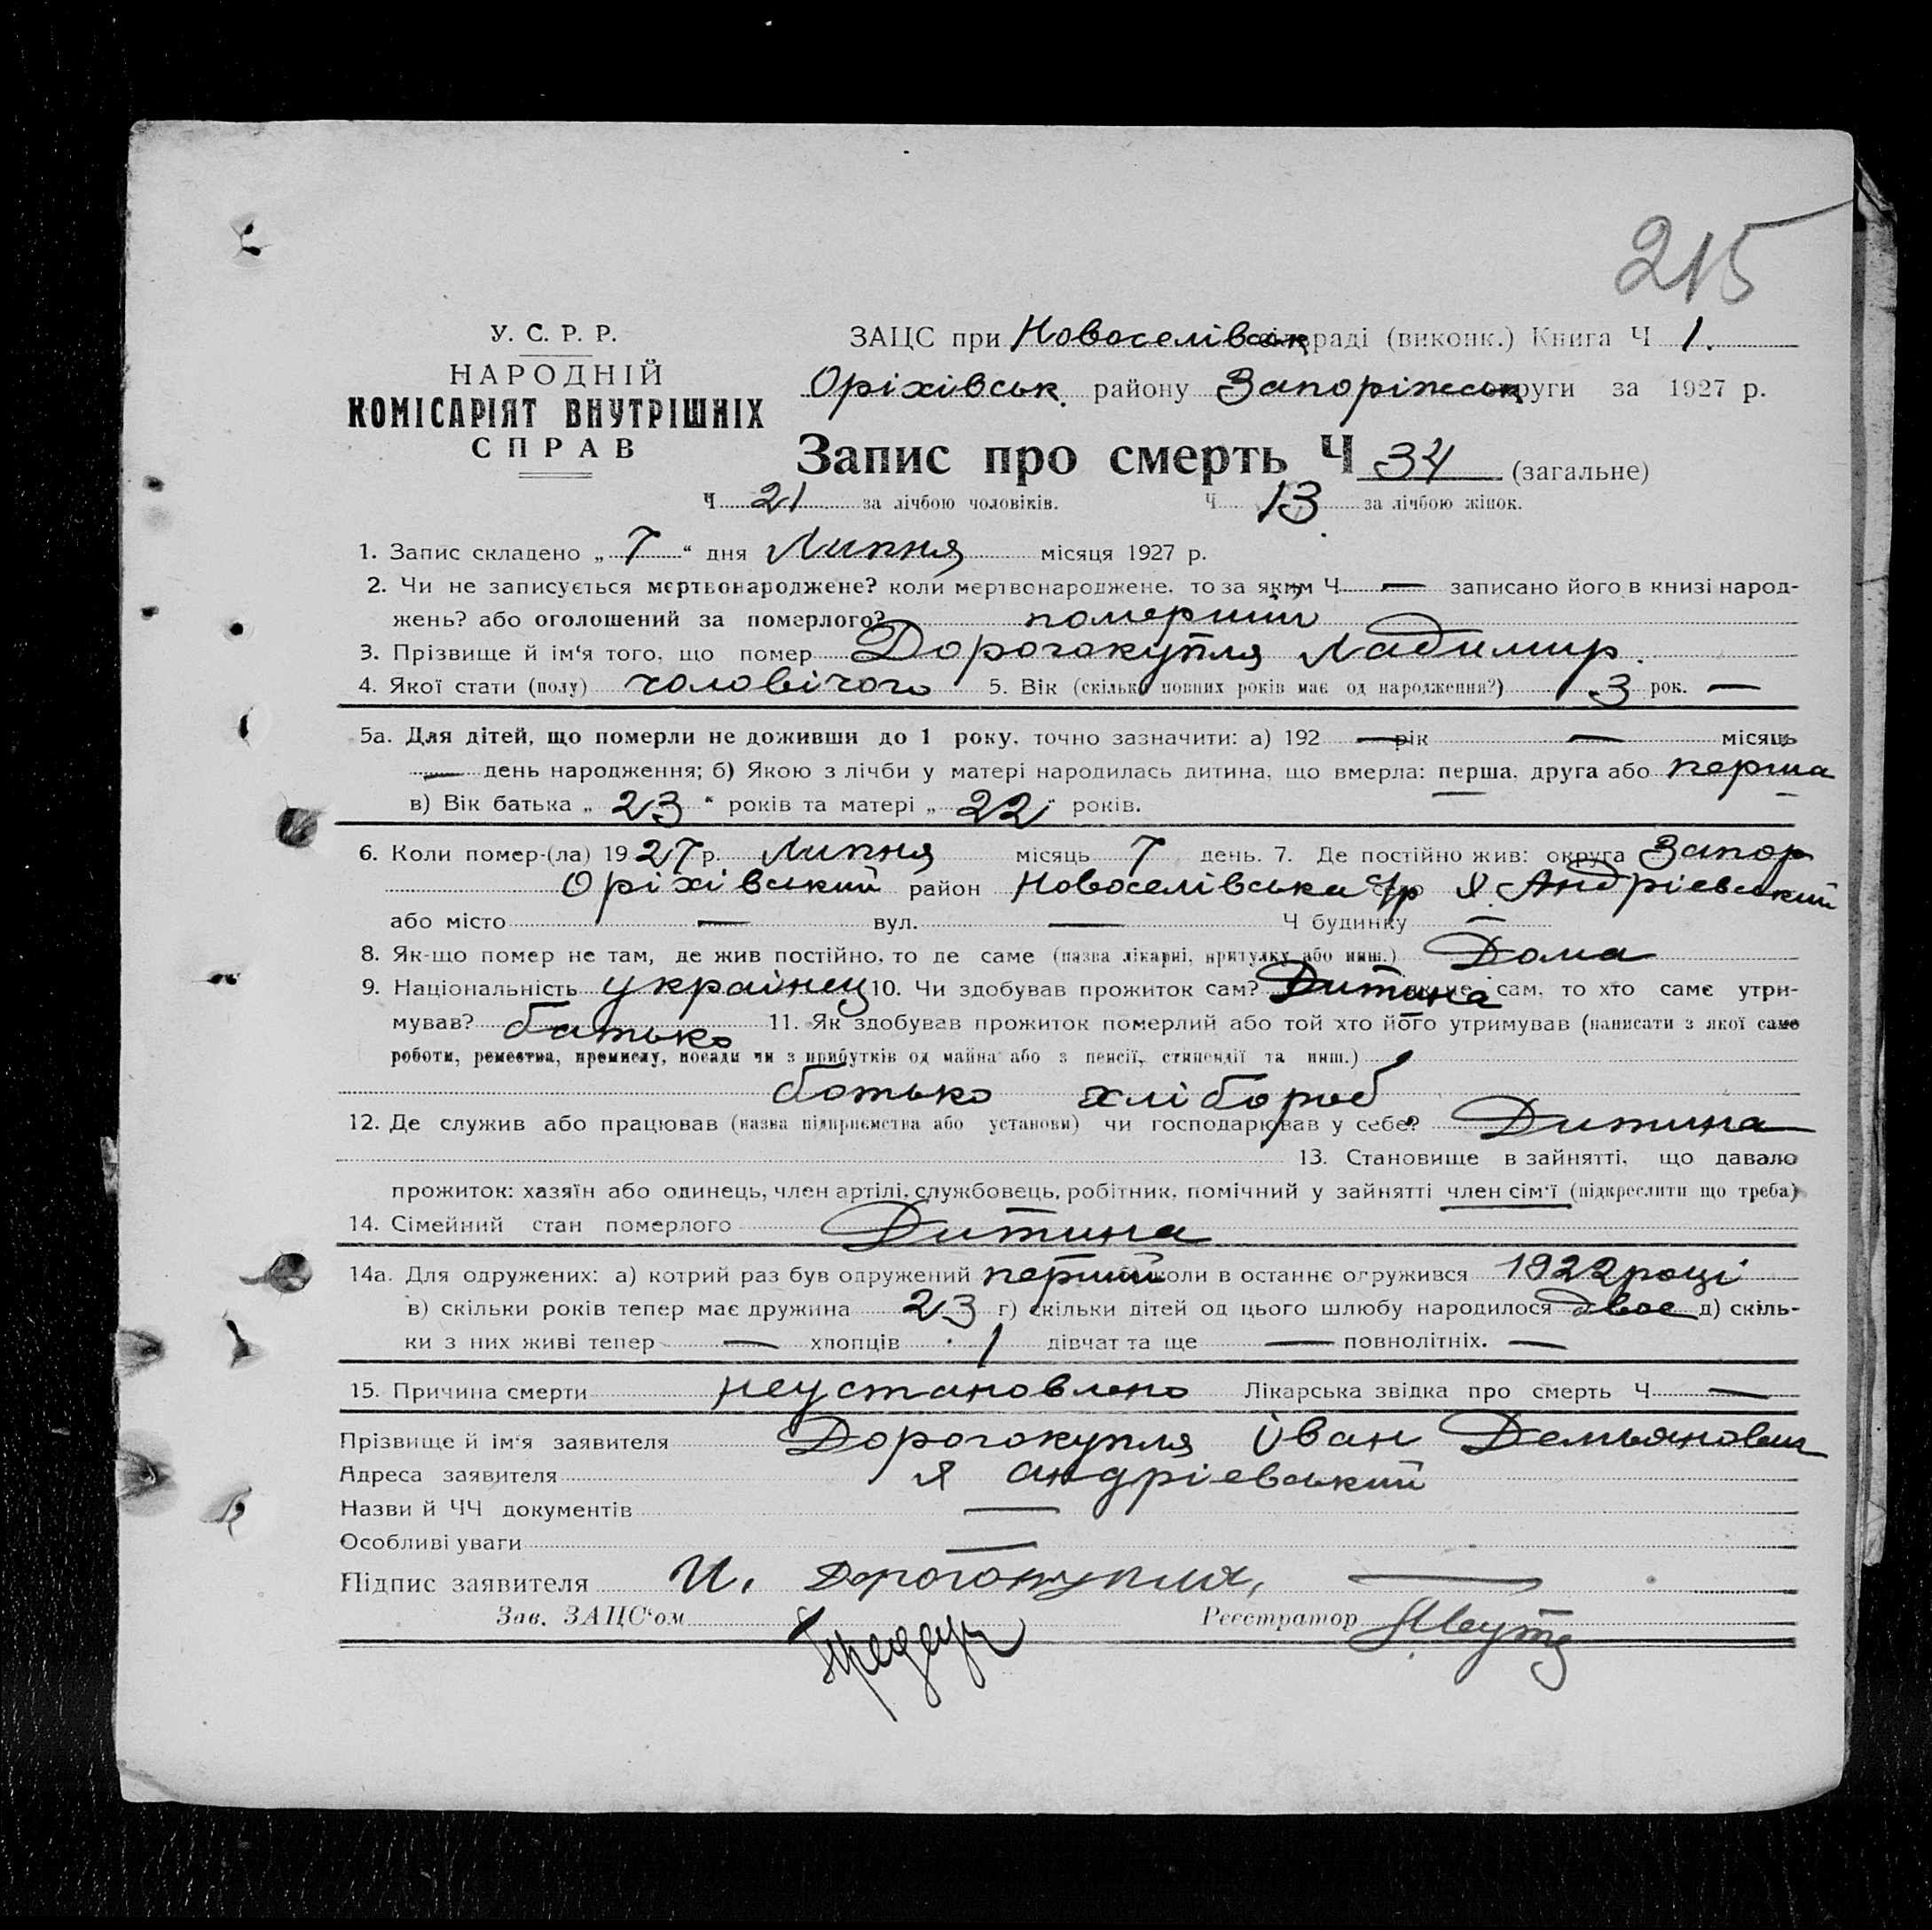 215
У. С. Р. Р.
НАРОДНІЙ
КОМІСАРІЯТ ВНУТРІШНІХ
СПРАВ
ЗАЦС при Новоселівськ сільраді (виконк.) Книга Ч 1.
Оріхівськ. району Запоріжськ округи за 1927 р.
Запис про смерть Ч 34 (загальне)
Ч 21 за лічбою чоловіків. Ч 13 за лічбою жінок.
1. Запис складено „ 7 “ дня Липня місяця 1927 р.
2. Чи не записується мертвонароджене? коли мертвонароджене, то за яким Ч — записано його в книзі народ-
жень? або оголошений за померлого? померший
3. Прізвище й ім‘я того, що помер Дорогокупля Ладимир.
4. Якої стати (полу) чоловічого 5. Вік (скільки повних років має од народження?) 3 рок. —
5а. Для дітей, що померли не доживши до 1 року, точно зазначити: а) 192 — рік — місяць
— день народження; б) Якою з лічби у матері народилась дитина, що вмерла: перша, друга або перша
в) Вік батька „ 23 “ років та матері „ 22 “ років.
6. Коли помер-(ла) 1927 р. Липня місяць 7 день. 7. Де постійно жив: округа Запор
Оріхівський район Новоселівська с/р х. Андріевський
або місто — вул. — Ч будинку —
8. Як-що помер не там, де жив постійно, то де саме (назва лікарні, притулку або инш.) Дома
9. Національність українец 10. Чи здобував прожиток сам? Дитина як не сам, то хто саме утри-
мував? батько 11. Як здобував прожиток померлий або той хто його утримував (написати з якої саме
роботи, ремества, промислу, посади чи з прибутків од майна або з пенсії, стипендії та инш.)
батько хлібороб
12. Де служив або працював (назва підприємства або установи) чи господарював у себе? Дитина
13. Становище в зайнятті, що давало
прожиток: хазяїн або одинець, член артілі, службовець, робітник, помічний у зайнятті член сім‘ї (підкреслити що треба)
14. Сімейний стан померлого Дитина
14а. Для одружених: а) котрий раз був одружений перший б) коли в останнє огружився 1922 році
в) скільки років тепер має дружина 23 г) скільки дітей од цього шлюбу народилося двое д) скіль-
ки з них живі тепер — хлопців 1 дівчат та ще — повнолітніх. —
15. Причина смерти неустановлено Лікарська звідка про смерть Ч —
Прізвище й ім‘я заявителя Дорогокупля Іван Демьянович
Адреса заявителя х Андріевський
Назви й ЧЧ документів —
Особливі уваги —
Підпис заявителя И. Дорогокупля, —
Зав. ЗАЦС‘ом
Реєстратор